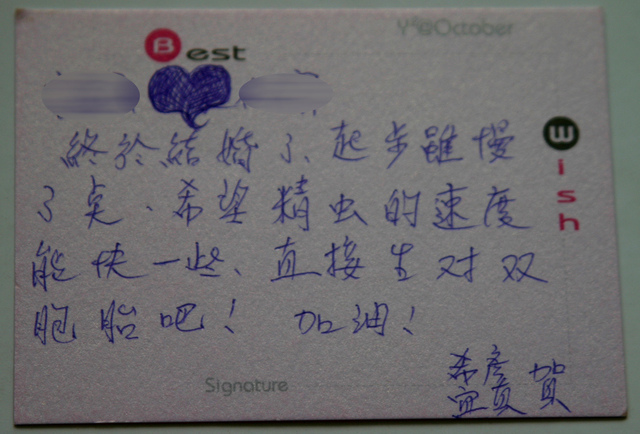 Y²@October
Best
Wish
終於結婚了、起步雖慢
了桌、希望精虫的速度
能快一些、直接生对双
胞胎吧! 加油!
希彦
宜真 賀
Signature